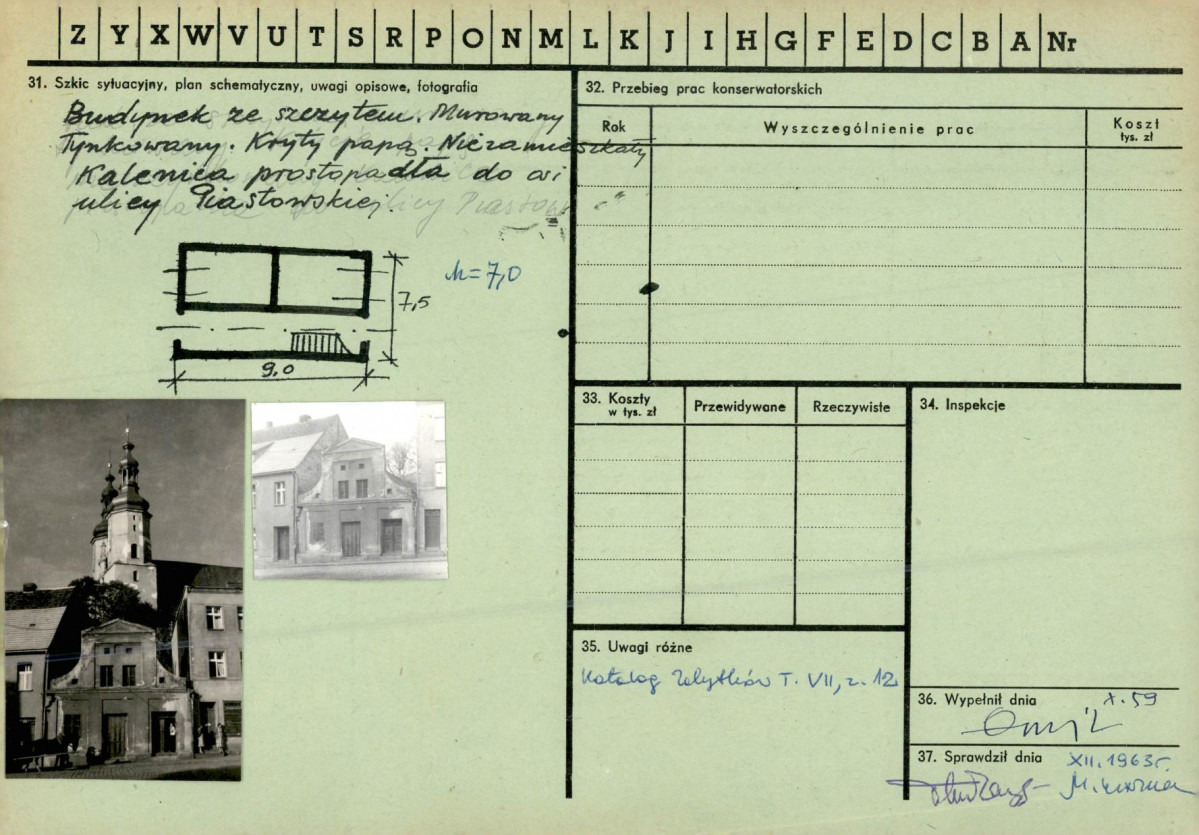 Z Y X W V U T S R P O N M L K J I H G F E D C B A Nr
31. Szkic sytuacyjny, plan schematyczny, uwagi opisowe, fotografia
Budynek ze szczytem. Murowany
Tynkowany. Kryty papą. Niezamieszkały
Kalenica prostopadła do osi
ulicy Piastowskiej.
h=7,0
7,5
9,0
32. Przebieg prac konserwatorskich
Rok
Wyszczególnienie prac
Koszt
tys. zł
33. Koszty
w tys. zł
Przewidywane
Rzeczywiste
34. Inspekcje
35. Uwagi różne
Katalog Zabytków T. VII, z. 12
36. Wypełnił dnia
X.59
37. Sprawdził dnia
XII.1963r.